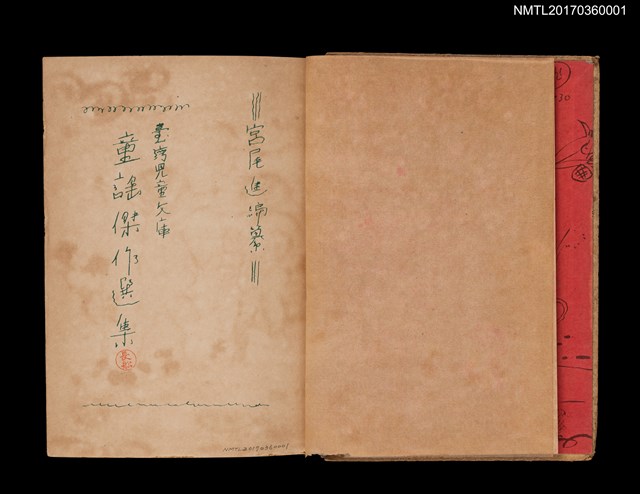 NMTL20170360001
宮尾進編纂
臺湾児童文庫
童謡傑作選集
NMTL20170360001
30